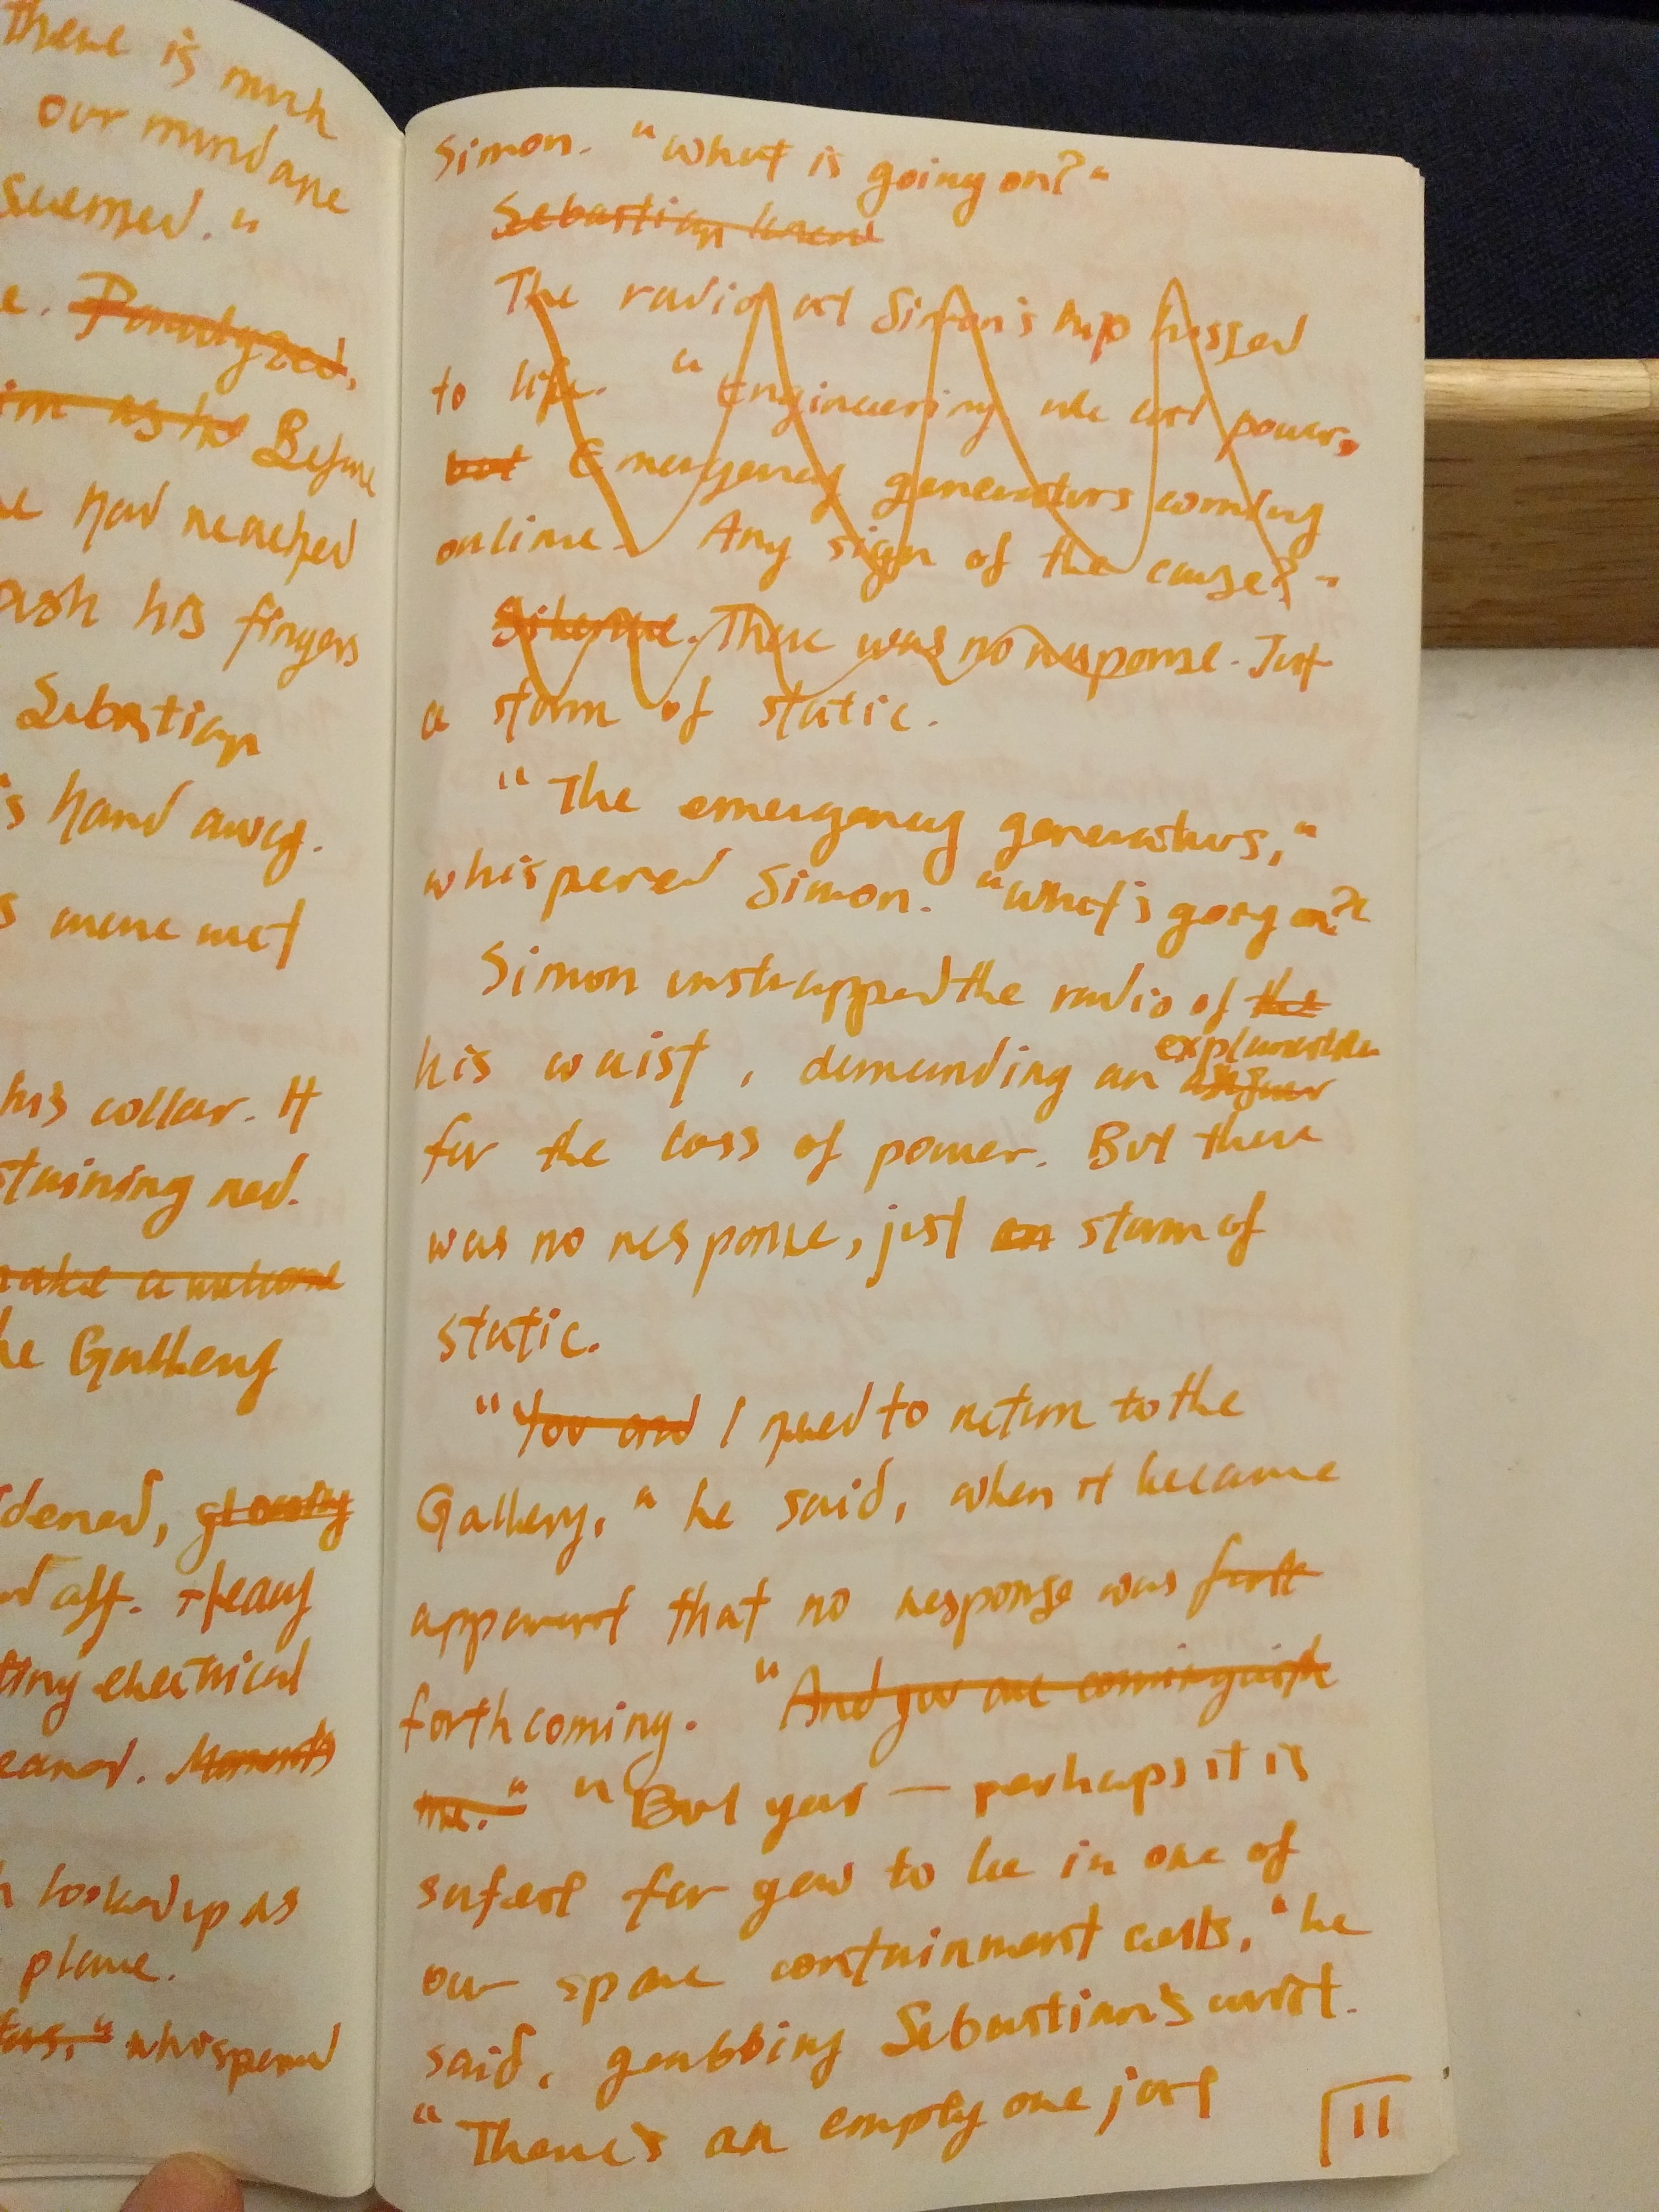 there is much
our mundane
seemed."
e. Paralyzed,
im as he Before
he had reached
ash his fingers
Sebastian
's hand away.
s mere met
his collar. It
staining red.
make a welcome
he Gallery
dened, slowly
d off. Heavy
tiny electrical
eaned. Moments
looked up as
plane.
tors," whispered
Simon. "What is going on?"
Sebastian knew
The radio at Simon's hip hissed
to life. "Engineering, we lost power,
but Emergency generators coming
online. Any sign of the cause?"
Silence. There was no response. Just
a storm of static.
"The emergency generators,"
whispered Simon. "What's going on?"
Simon unstrapped the radio of the
his waist, demanding an answer explanation
for the loss of power. But there
was no response, just storm of
static.
"You and I need to return to the
Gallery," he said, when it became
apparent that no response was forth
forthcoming. "And you are coming with
me." "But you — perhaps it is
safest for you to be in one of
our spare containment cells," he
said, grabbing Sebastian's wrist.
"There's an empty one just
11